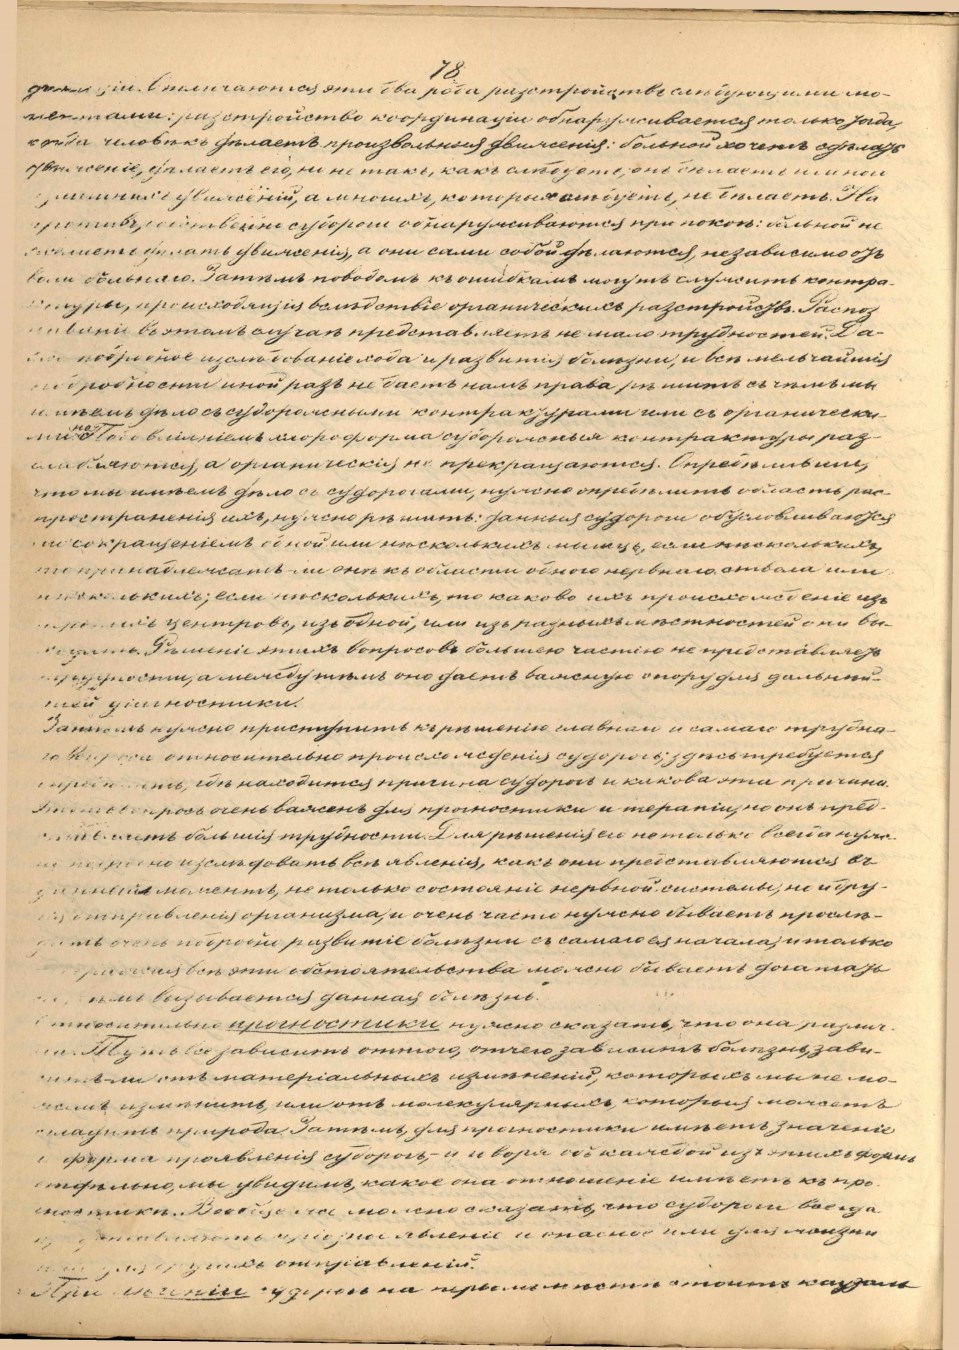 78
Отличаются эти два рода разстройствъ слѣдующими мо-
ментами: разстройство координаціи обнаруживается только тогда,
когда человѣкъ дѣлаетъ произвольныя движенія: больной хочетъ сдѣлать
движеніе, дѣлаетъ его, но не такъ, какъ слѣдуетъ, онъ дѣлаетъ много
движеній, а многихъ, которыя слѣдуетъ, не дѣлаетъ. На
противъ, судороги обнаруживаются при покоѣ: больной не
желаетъ дѣлать движенія, а они сами собой дѣлаются, независимо отъ
воли больнаго. Затѣмъ поводомъ къ ошибкамъ могутъ служить контра-
ктуры, происходящія вслѣдствіе органическихъ разстройствъ. Распоз
наваніе въ этомъ случаѣ представляетъ не мало трудностей. Да-
же подробное изслѣдованіе хода и развитія болѣзни, и всѣ мельчайшія
подробности иной разъ не даетъ намъ права рѣшить съ чѣмъ мы
имѣемъ дѣло съ судорожными контрактурами или съ органически-
ми. Подъ вліяніемъ хлороформа судорожныя контрактуры раз-
слабляются, а органическія не прекращаются. Опредѣливши,
что мы имѣемъ дѣло съ судорогами, нужно опредѣлить область рас-
пространенія ихъ, нужно рѣшить: данныя судороги обусловливаются
ли сокращеніемъ одной или нѣсколькихъ мышцъ, если нѣсколькихъ,
то принадлежатъ-ли онѣ къ области одного нервнаго ствола или
нѣсколькихъ; если нѣсколькихъ, то каково ихъ происхожденіе изъ
центровъ, изъ одной, или изъ разныхъ мѣстностей они вы-
ходятъ. Рѣшеніе этихъ вопросовъ большею частію не представляетъ
трудности, а между тѣмъ оно даетъ важную опору для дальнѣй-
шей діагностики.
Затѣмъ нужно приступить къ рѣшенію главнаго и самаго трудна-
го вопроса относительно происхожденія судорогъ; здѣсь требуется
опредѣлить, гдѣ находится причина судорогъ и какова эта причина.
Этотъ вопросъ очень важенъ для прогностики и терапіи, но онъ пред-
ставляетъ большія трудности. Для рѣшенія его не только всегда нуж-
но подробно изслѣдовать всѣ явленія, какъ они представляются въ
данный моментъ, не только состояніе нервной системы, но и дру-
гія отправленія организма, и очень часто нужно бываетъ прослѣ-
дить очень подробно развитіе болѣзни съ самаго ея начала; и только
всѣ эти обстоятельства можно бываетъ догадать
ся, чѣмъ вызывается данная болѣзнь.
Относительно прогностики нужно сказать, что она различ-
на. Тутъ все зависитъ оттого, отчего зависитъ болѣзнь, зави-
ситъ-ли отъ матеріальныхъ измѣненій, которыхъ мы не мо-
жемъ измѣнить, или отъ молекулярныхъ, которыя можетъ
сгладить природа. Затѣмъ, для прогностики имѣетъ значеніе
и форма проявленія судорогъ, и говоря объ каждой изъ этихъ формъ
отдѣльно, мы увидимъ, какое она отношеніе имѣетъ къ про-
гностикѣ. Вообще же можно сказать, что судороги всегда
явленіе и опасное или для жизни
или для другихъ отправленій.
При леченіи судорогъ на первомъ мѣстѣ стоитъ каузаль